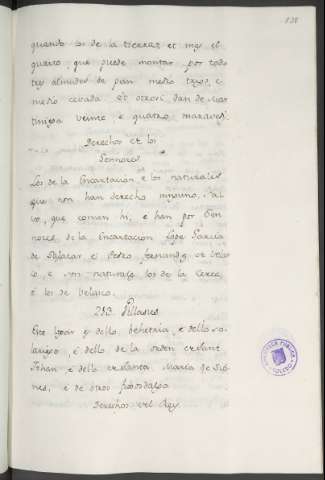 quando los de la tierra: et mas el
quarto, que puede montar por todo
tres almudes de pan medio trigo, e
medio cevada. Et otrosi dan de mar
tiniega veinte e quatro maraves.
Derechos de los
Sennores
Los de la Encartacion e los naturales
que non han derecho ninguno, sal
vo, que coman hi, e han por Sen
nores de la Encartacion Lope Garcia
de Salazar, e Pedro Fernandez de
e son naturales los de la Cerca,
e los de Velasco.
Villasur
Este logar es dello behetria, e dello so
lariego, e dello de la orden de Sant
Johan, e dello de Santa Maria de
nes, e de otros fijosdalgo
Derechos del Rey
BIBLIOTECA PUBLICA
TOLEDO